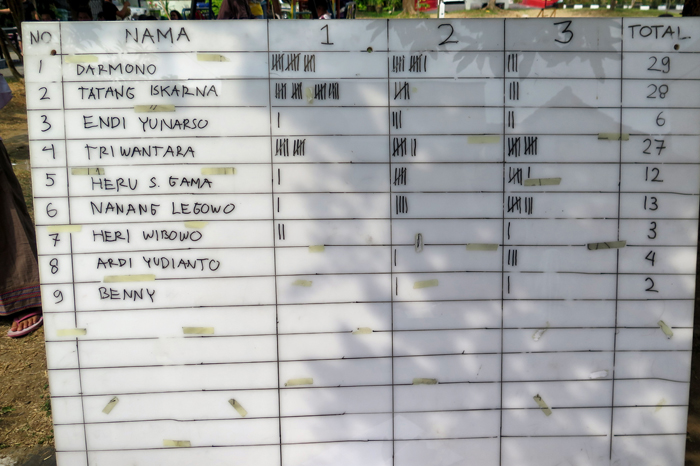 NO NAMA 1 2 3 TOTAL
1 DARMONO 29
2 TATANG ISKARNA 28
3 ENDI YUNARSO 6
4 TRIWANTARA 27
5 HERU S. GAMA 12
6 NANANG LEGOWO 13
7 HERI WIBOWO 3
8 ARDI YUDIANTO 4
9 BENNY 2